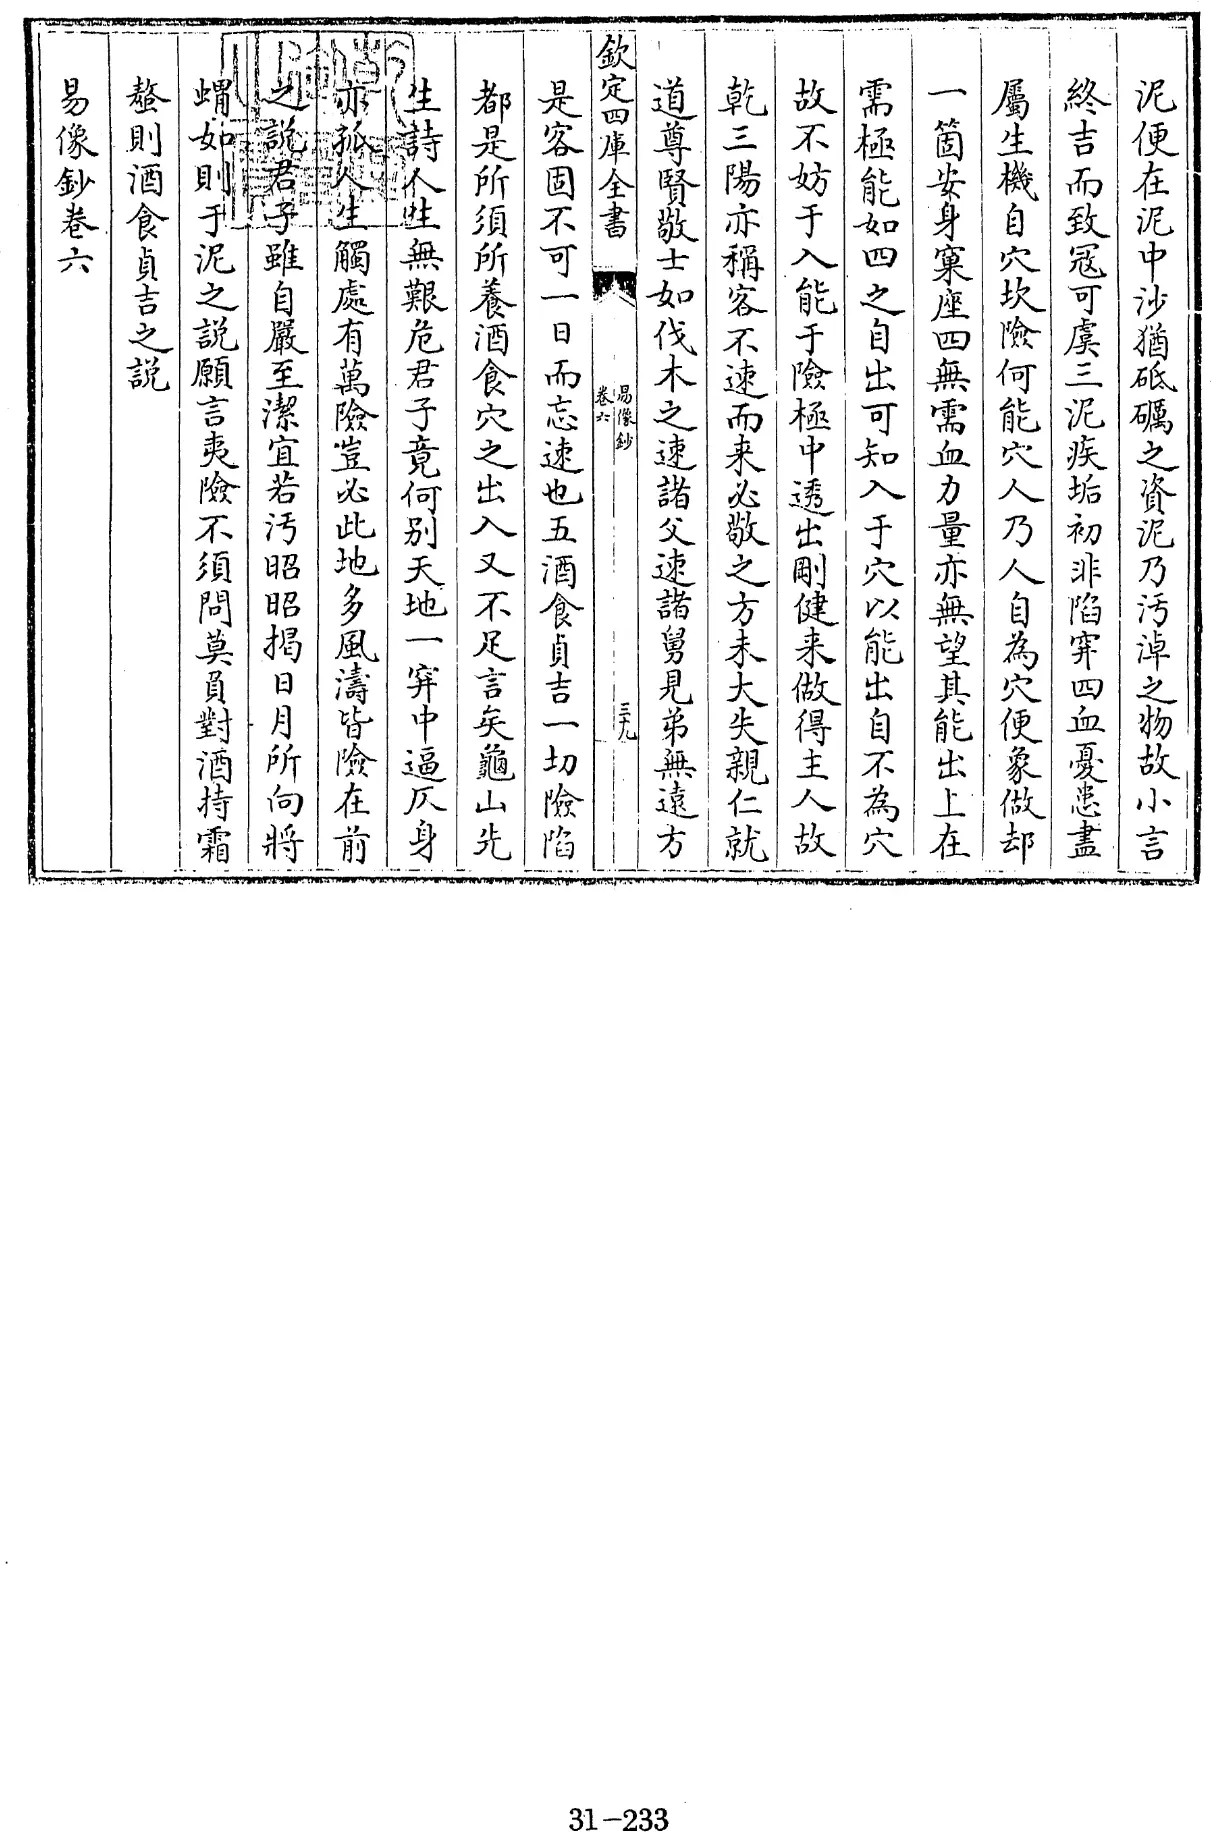 泥便在泥中沙猶砥礪之資泥乃汚淖之物故小言
終吉而致冦可虞三泥疾垢初非陷穽四血憂患盡
屬生機自穴坎險何能穴人乃人自為穴便象做却
一箇安身窠座四無需血力量亦無望其能出上在
需極能如四之自出可知入于穴以能出自不為穴
故不妨于入能于險極中透出剛健来做得主人故
乾三陽亦稱客不速而来必敬之方未大失親仁就
道尊賢敬士如伐木之速諸父速諸舅兄弟無遠方
欽定四庫全書
易像鈔
卷六
三九
是客固不可一日而忘速也五酒食貞吉一切險陷
都是所須所養酒食穴之出入又不足言矣龜山先
生詩人生無艱危君子竟何別天地一穽中逼仄身
亦孤人生觸處有萬險豈必此地多風濤皆險在前
之說君子雖自嚴至潔宜若汚昭昭揭日月所向將
蝟如則于泥之説願言夷險不須問莫負對酒持霜
螯則酒食貞吉之説
易像鈔卷六
31-233